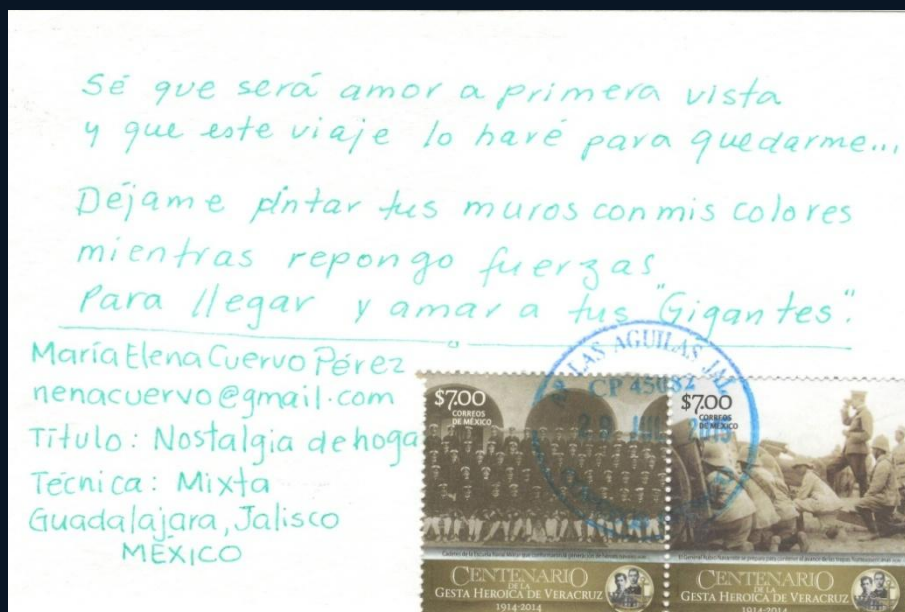 Sé que será amor a primera vista
y que este viaje lo haré para quedarme...
Déjame pintar tus muros con mis colores
mientras repongo fuerzas
Para llegar y amar a tus "Gigantes".
María Elena Cuervo Pérez
nenacuervo@gmail.com
Título: Nostalgia de hoga
Técnica: Mixta
Guadalajara, Jalisco
MÉXICO
LAS AGUILAS JAL
CP 45082
$7.00
CORREOS
DE MÉXICO
CENTENARIO
DE LA
GESTA HEROICA DE VERACRUZ
1914-2014
$7.00
CORREOS
DE MÉXICO
CENTENARIO
DE LA
GESTA HEROICA DE VERACRUZ
1914-2014